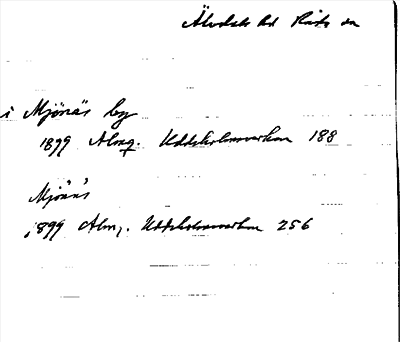 Älvdals hd Råda sn
i Mjönäs by
1899 Almq. Uddeholmsverken 188
Mjönäs
1899 Alm,. Uddeholmsverken 256